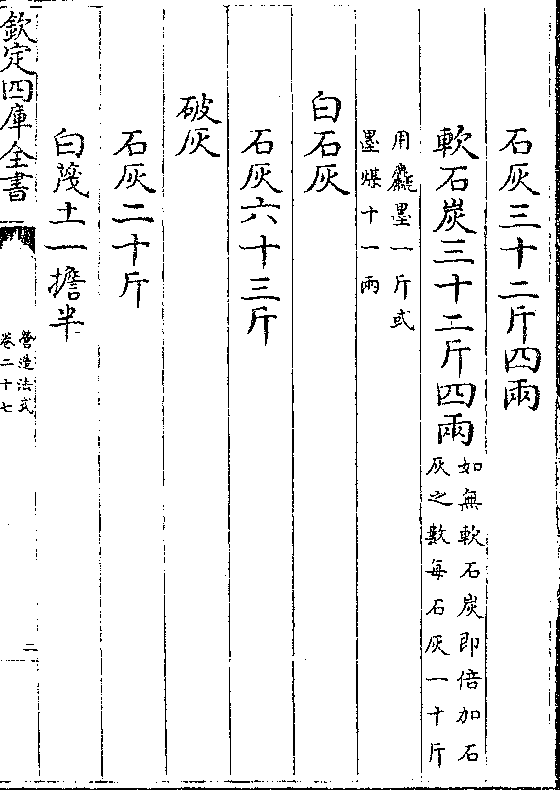 石灰三十二斤四兩
軟石炭三十二斤四兩如無軟石炭即倍加石
灰之數每石灰一十斤
用麤墨一斤或
墨煤十一兩
白石灰
石灰六十三斤
破灰
石灰二十斤
白蔑土一擔半
欽定四庫全書
營造法式
卷二十七
二